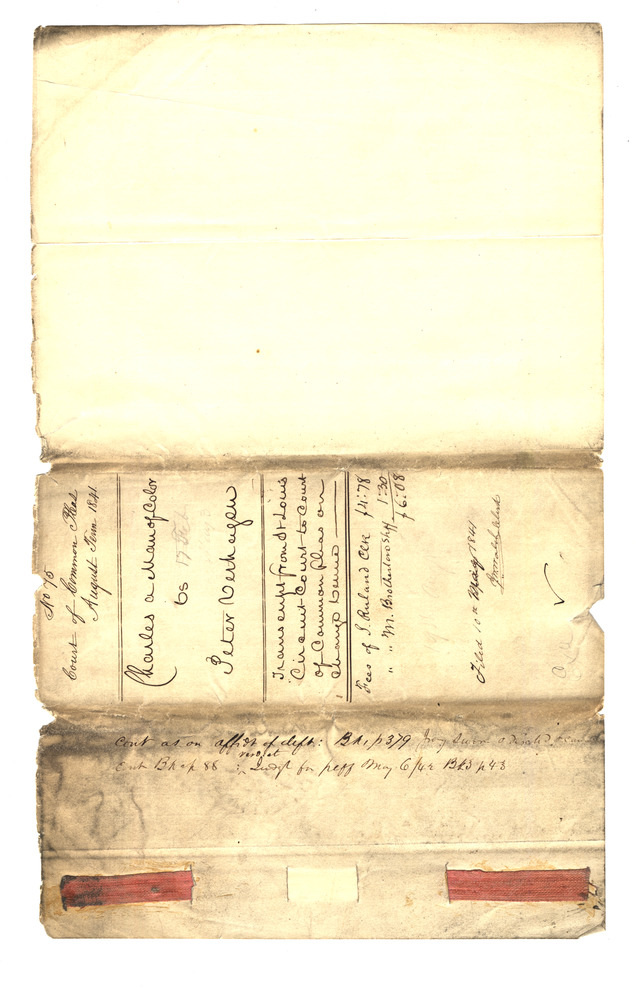 No 75
Court of Common Pleas
August Term 1841
Charles a Man of Color
vs
Peter Verhagen
Transcript from St Louis
Circuit Court to Court
of Common Pleas on
Change Venue
Fees of J. Ruland Clk $4.78
" " M. Brotherton Shff 1.30
$6.08
Filed 10th May 1841
Clerk
Cont as on affidt of deft: Bk 1 p 379 Jury sworn
verdict
Bk p 88 : Judgt for peff May 6/42 Bk 3 p 48